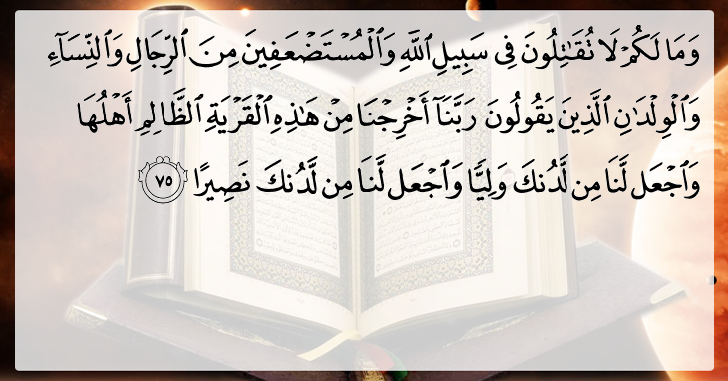 وَمَا لَكُمْ لَا تُقَـٰتِلُونَ فِى سَبِيلِ ٱللَّهِ وَٱلْمُسْتَضْعَفِينَ مِنَ ٱلرِّجَالِ وَٱلنِّسَآءِ
وَٱلْوِلْدَٰنِ ٱلَّذِينَ يَقُولُونَ رَبَّنَآ أَخْرِجْنَا مِنْ هَـٰذِهِ ٱلْقَرْيَةِ ٱلظَّالِمِ أَهْلُهَا
وَٱجْعَل لَّنَا مِن لَّدُنكَ وَلِيًّا وَٱجْعَل لَّنَا مِن لَّدُنكَ نَصِيرًا ٧٥